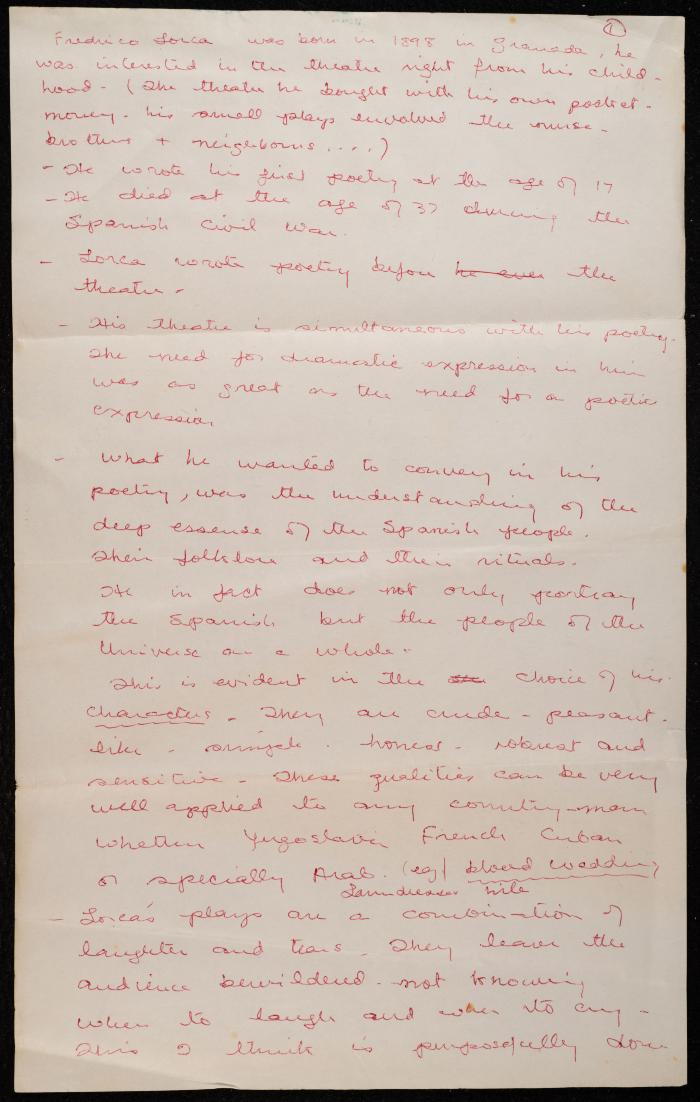 ①
Fredrico Lorca was born in 1898 in Granada, he
was interested in the theatre right from his child-
hood - (The theatre he bought with his own pocket-
money. his small plays envolved the nurse -
brothers + neighbours ....)
- He wrote his first poetry at the age of 17
- He died at the age of 37 during the
Spanish civil War.
- Lorca wrote poetry before he even the
theatre -
- His theatre is simultaneous with his poetry.
The need for dramatic expression in him
was as great as the need for a poetic
expression
- What he wanted to convey in his
poetry, was the understanding of the
deep essense of the Spanish people.
Their folklore and their rituals.
He in fact does not only portray
the Spanish but the people of the
Universe as a whole -
This is evident in the choice of his
characters - They are crude - peasant -
like - simple - honest - robust and
sensitive - These qualities can be very
well applied to any country-man
whether Yugoslavia French Cuban
or specially Arab. (eg) blood wedding
Laundresses
- Lorca's plays are a combination of
laughter and tears - They leave the
audience bewildered - not knowing
when to laugh and when to cry -
This I think is purposefully done